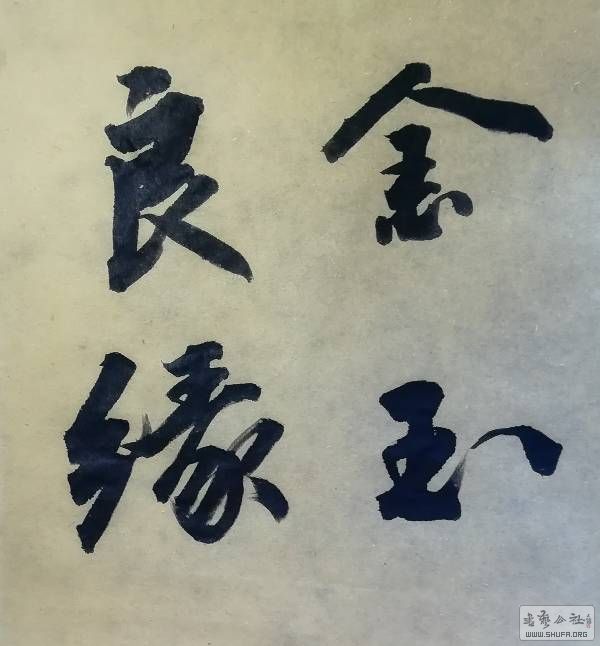 金玉
良缘
书艺公社
WWW.SHUFA.ORG